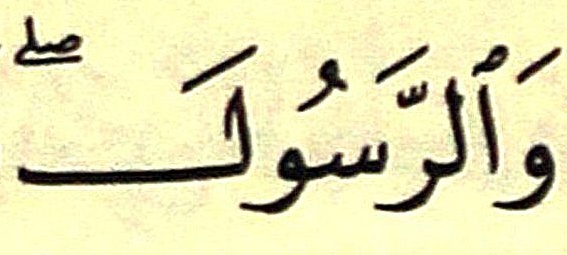 وَٱلرَّسُولَ ۖ